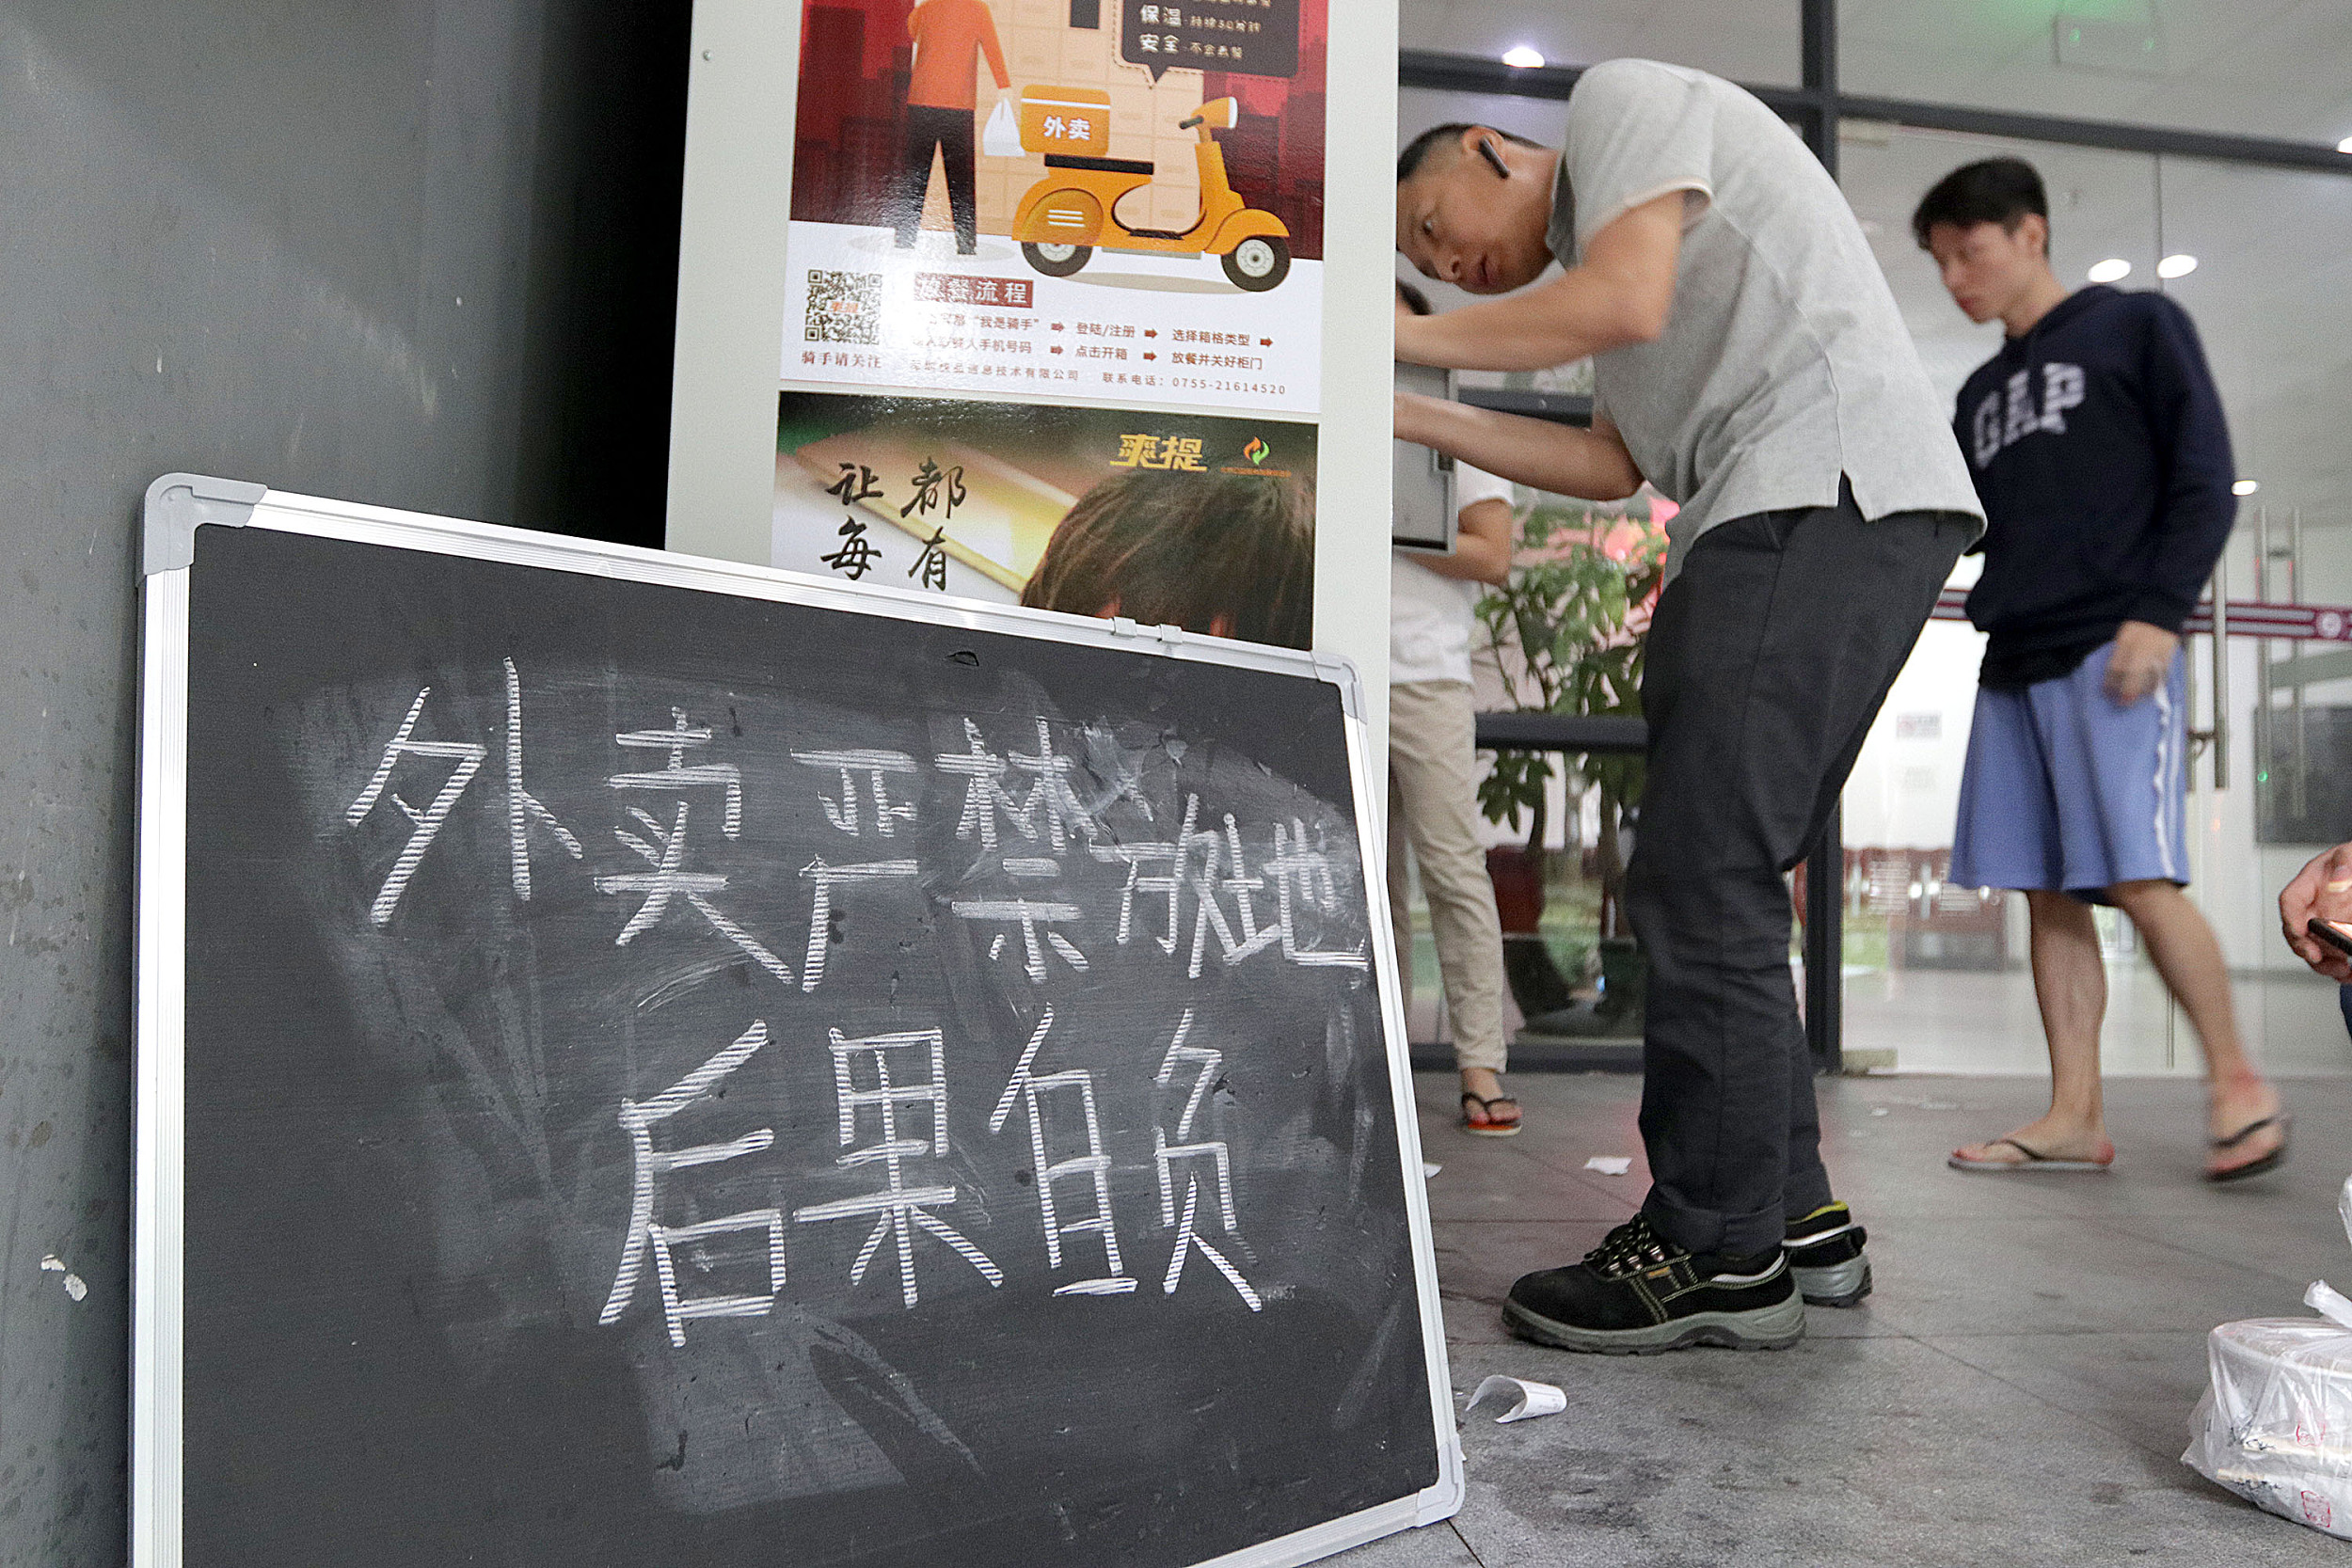 保温·持续30分钟
安全·不会丢餐
外卖
放餐流程
“我是骑手” ➡ 登陆/注册 ➡ 选择箱格类型 ➡
人手机号码 ➡ 点击开箱 ➡ 放餐并关好柜门
骑手请关注
信息技术有限公司 联系电话：0755-21614520
爽提
让 都
每 有
GAP
外卖严禁放地
后果自负